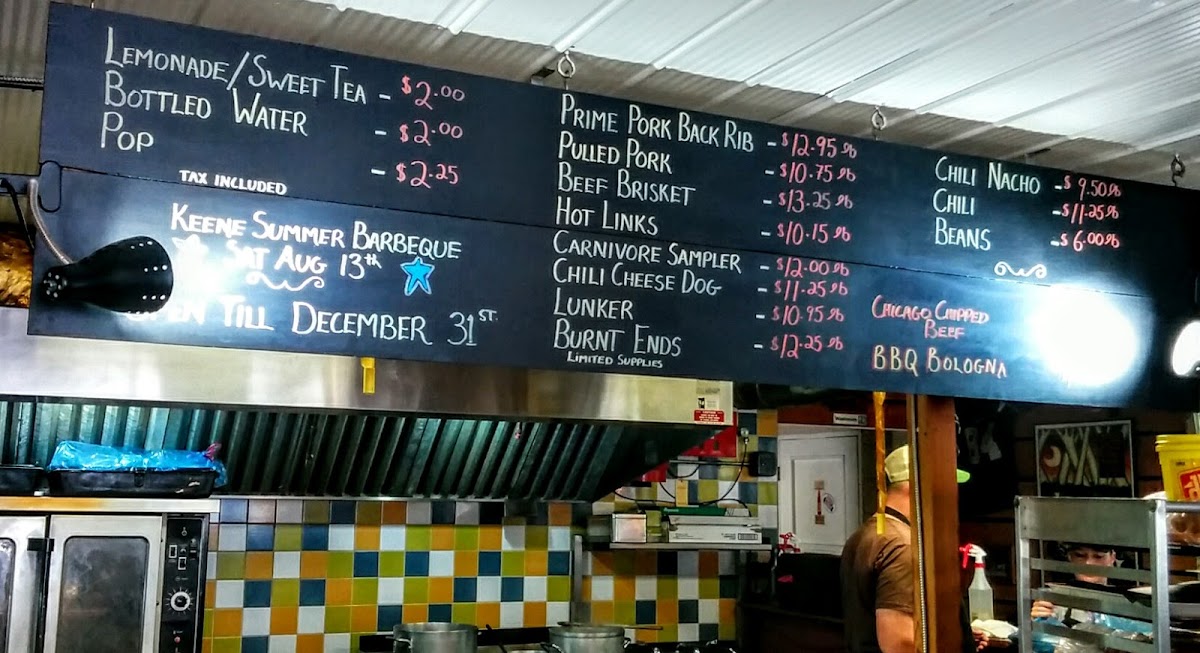 LEMONADE/SWEET TEA - $2.00
BOTTLED WATER - $2.00
POP - $2.25
TAX INCLUDED
KEENE SUMMER BARBEQUE
SAT AUG 13th
OPEN TILL DECEMBER 31ST.
PRIME PORK BACK RIB - $12.95 lb
PULLED PORK - $10.75 lb
BEEF BRISKET - $13.25 lb
HOT LINKS - $10.15 lb
CARNIVORE SAMPLER - $12.00 lb
CHILI CHEESE DOG - $11.25 lb
LUNKER - $10.95 lb
BURNT ENDS - $12.25 lb
LIMITED SUPPLIES
CHILI NACHO - $9.50 lb
CHILI - $11.25 lb
BEANS - $6.00 lb
CHICAGO CHIPPED
BEEF
BBQ BOLOGNA